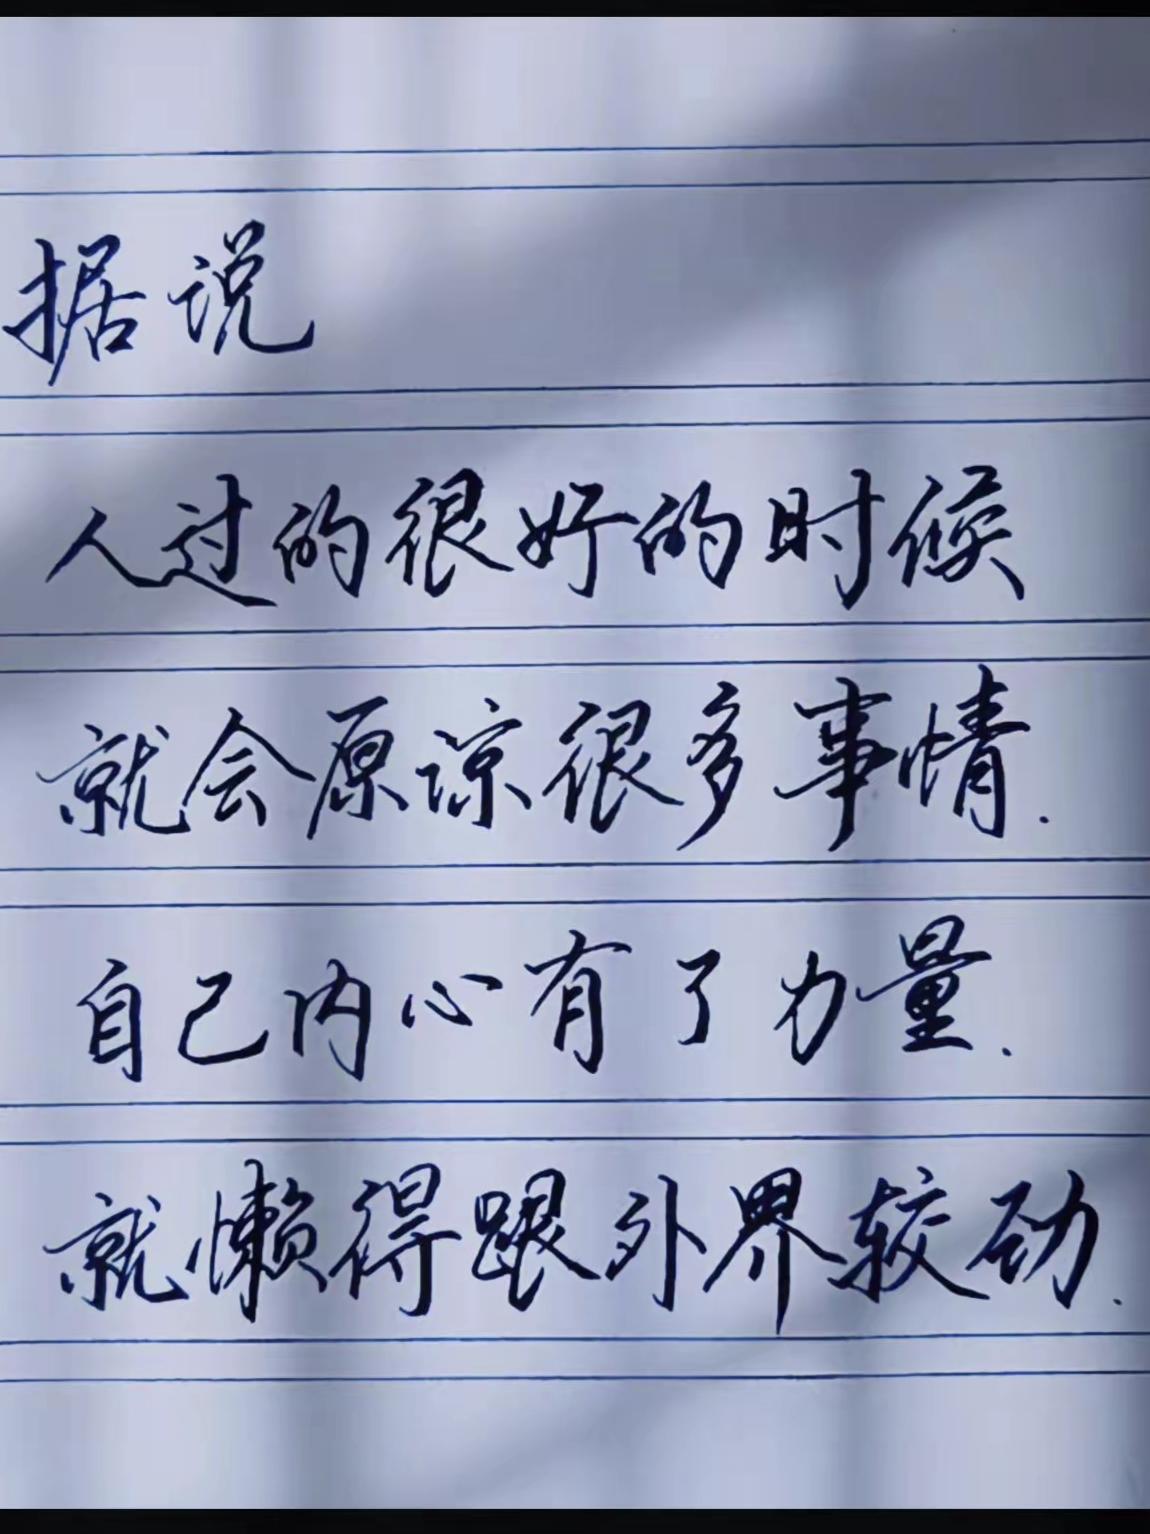 据说
人过的很好的时候
就会原谅很多事情.
自己内心有了力量.
就懒得跟外界较劲.